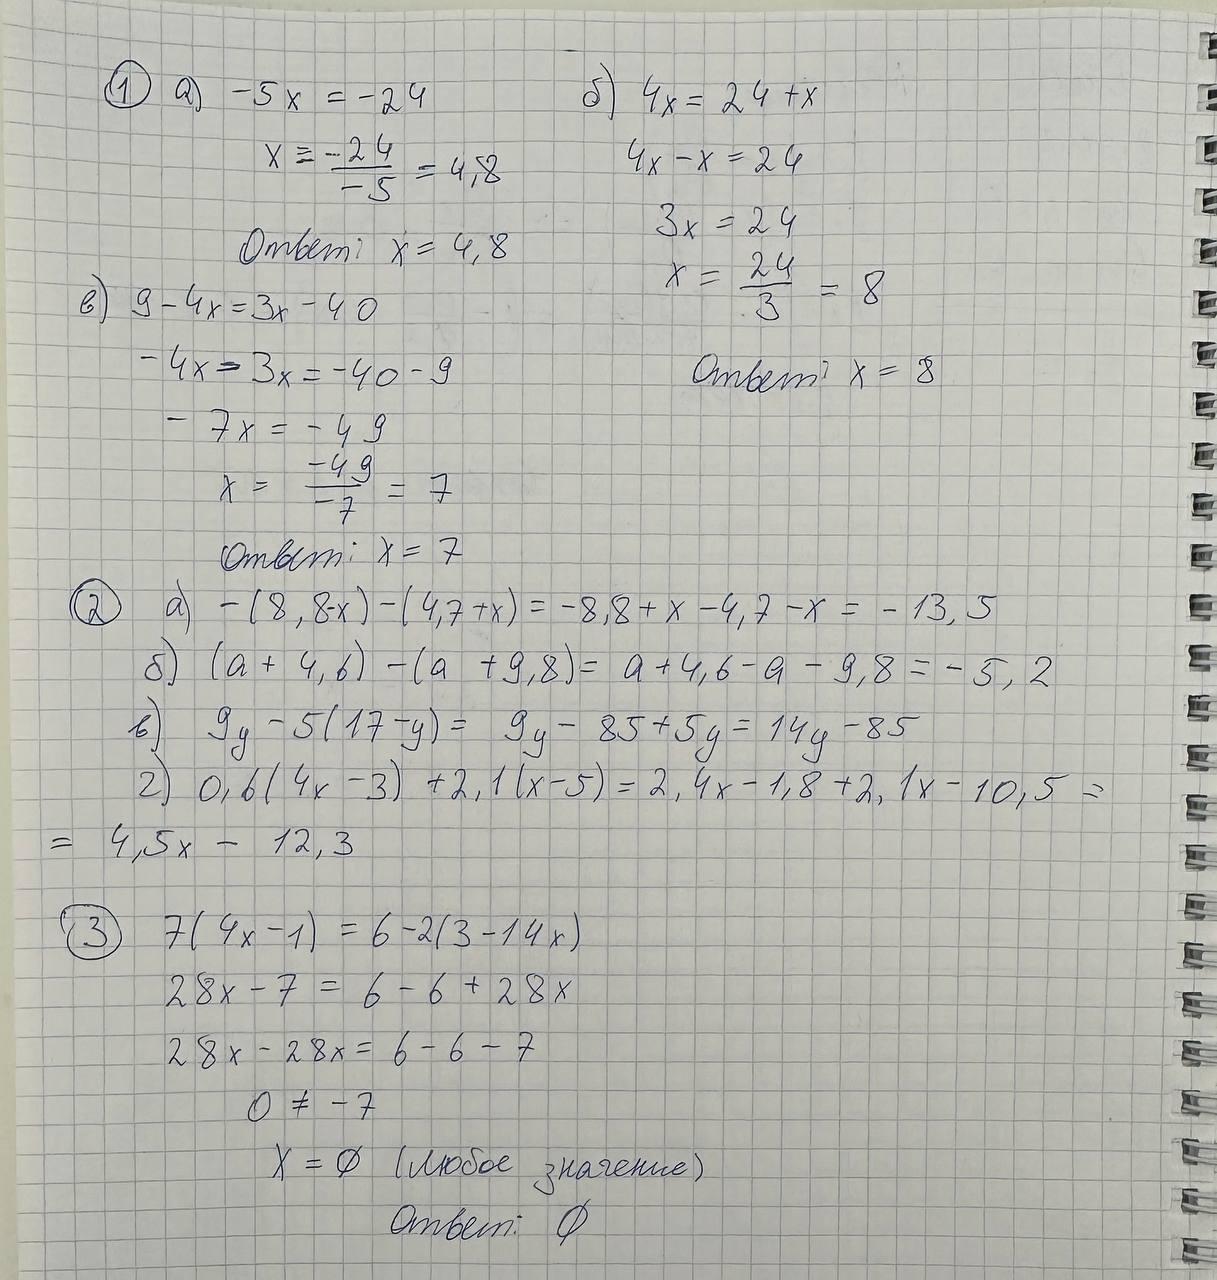 ① а) -5x = -24
x = -24/-5 = 4,8
Ответ: x = 4,8
б) 4x = 24 + x
4x - x = 24
3x = 24
x = 24/3 = 8
Ответ: x = 8
в) 9 - 4x = 3x - 40
-4x - 3x = -40 - 9
- 7x = - 49
x = -49/-7 = 7
Ответ: x = 7
② а) -(8,8-x) - (4,7+x) = -8,8 + x - 4,7 - x = - 13,5
б) (a + 4,6) - (a + 9,8) = a + 4,6 - a - 9,8 = - 5,2
в) 9y - 5(17-y) = 9y - 85 + 5y = 14y - 85
г) 0,6(4x - 3) + 2,1(x-5) = 2,4x - 1,8 + 2,1x - 10,5 =
= 4,5x - 12,3
③ 7(4x-1) = 6-2(3-14x)
28x - 7 = 6 - 6 + 28x
28x - 28x = 6 - 6 - 7
0 ≠ -7
X = ∅ (любое значение)
Ответ: ∅